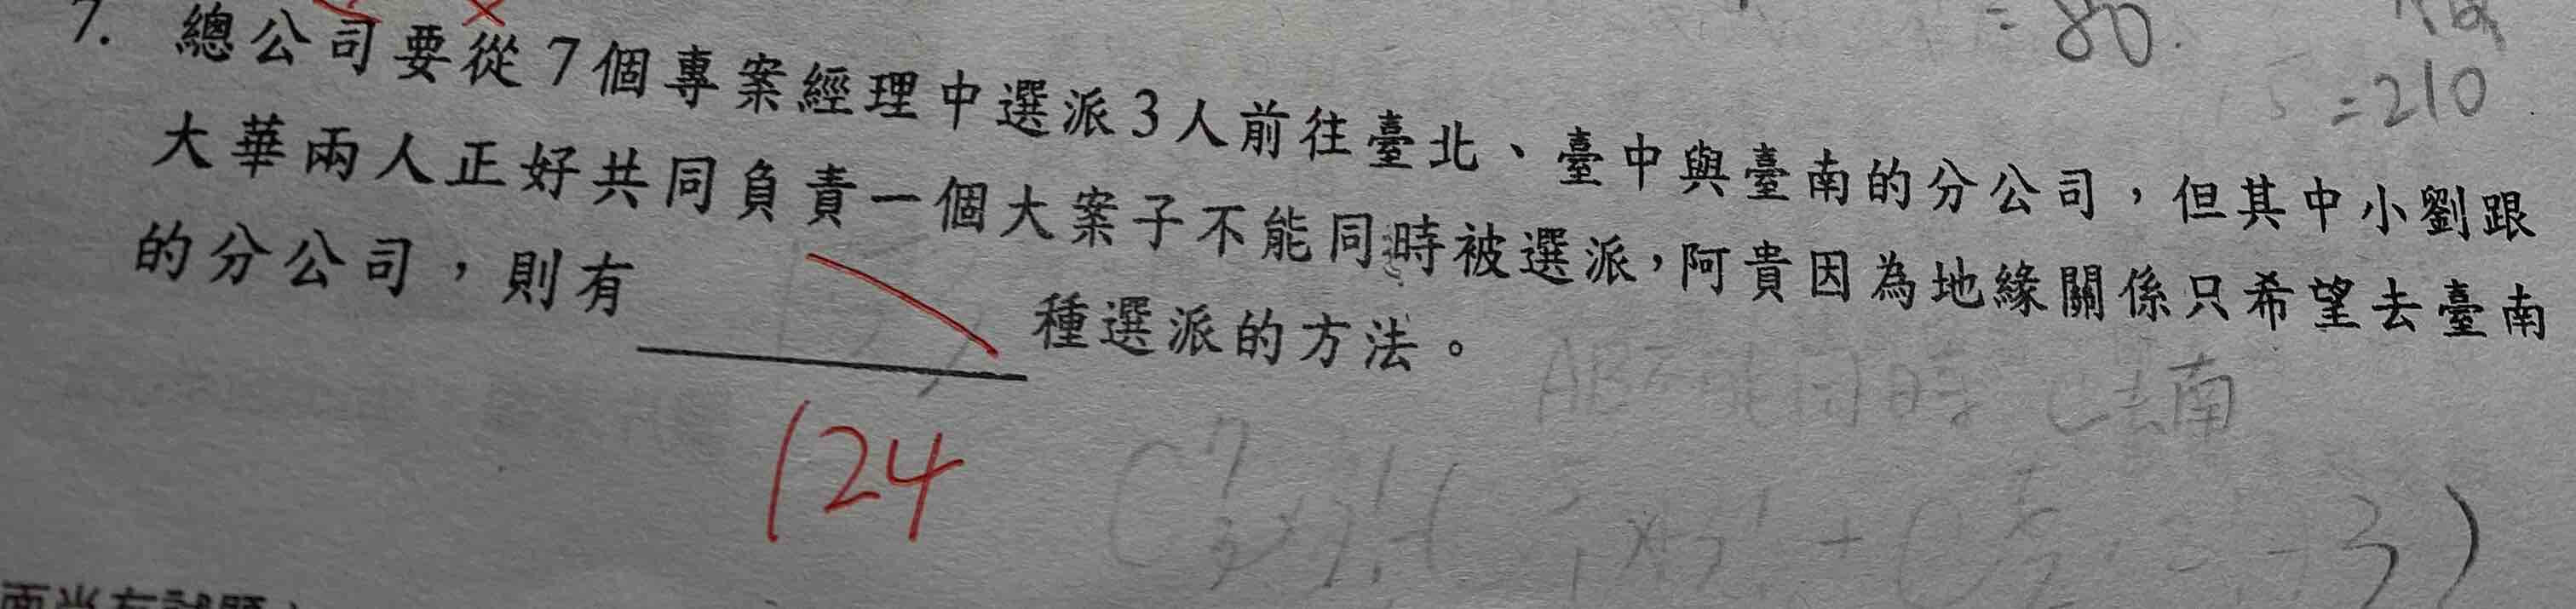 = 80.
= 210
7. 總公司要從7個專案經理中選派3人前往臺北、臺中與臺南的分公司，但其中小劉跟
大華兩人正好共同負責一個大案子不能同時被選派，阿貴因為地緣關係只希望去臺南
的分公司，則有 種選派的方法。
124
南